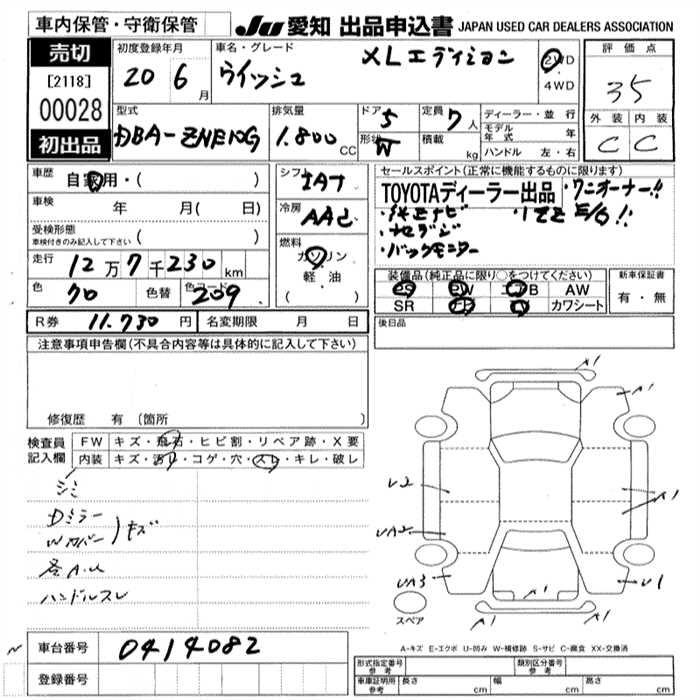 車内保管・守衛保管
JU 愛知 出品申込書 JAPAN USED CAR DEALERS ASSOCIATION
売切
[2118]
00028
初出品
初度登録年月
20 6月
車名・グレード
ウイッシュ XLエディション
2WD
・
4WD
評価点
35
外装 内装
C C
型式
DBA-ZNE10G
排気量
1.800 CC
ドア 5
形状 W
定員 7人
積載 kg
ディーラー・並行
モデル年式 年
ハンドル 左・右
車歴
自家用・( )
車検 年 月( 日)
受検形態
車検付きのみ記入して下さい ( )
走行 12万7千230km
色 70 色替 色コード 209
R券 11.730円 名変期限 月 日
シフト IAT
冷房 AAC
燃料
ガソリン
・
軽・油
( )
セールスポイント(正常に機能するものに限ります)
TOYOTAディーラー出品 ・ワンオーナー!!
・純正ナビ
・1ZZ E/G!!
・ナビ
・バックモニター
装備品(純正品に限り○をつけてください)
PS PW エアB AW
SR カワシート
新車保証書
有・無
後日品
注意事項申告欄(不具合内容等は具体的に記入して下さい)
修復歴 有 (箇所 )
検査員記入欄
FW キズ・飛石・ヒビ割・リペア跡・X要
内装 キズ・汚レ・コゲ・穴・スレ・キレ・破レ
シミ
Dミラー
Wカバー
キズ
各A.U
ハンドルスレ
A1
A1
U2
A1
UA2
UA3
U1
A1
A1
スペア
A-キズ E-エクボ U-凹み W-補修跡 S-サビ C-腐食 XX-交換済
車台番号 0414082
登録番号
形式指定番号
参考
類別区分番号
参考
車庫証明用
参考
長さ cm 幅 cm 高さ cm